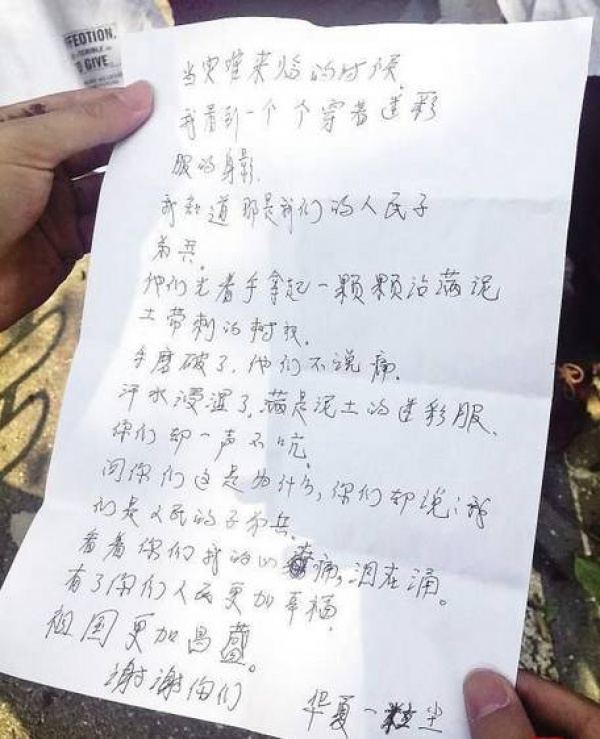 FFECTION.
GIVE
当灾难来临的时候,
我看到一个个穿着迷彩
服的身影.
我知道那是我们的人民子
弟兵.
他们光着手拿起一颗颗沾满泥
土带刺的树杈.
手磨破了,他们不说痛.
汗水浸湿了,满是泥土的迷彩服.
你们却一声不吭.
问你们这是为什么,你们却说:我
们是人民的子弟兵.
看着你们我的心痛,泪在涌。
有了你们人民更加幸福,
祖国更加昌盛。
谢谢你们
华夏一粒尘